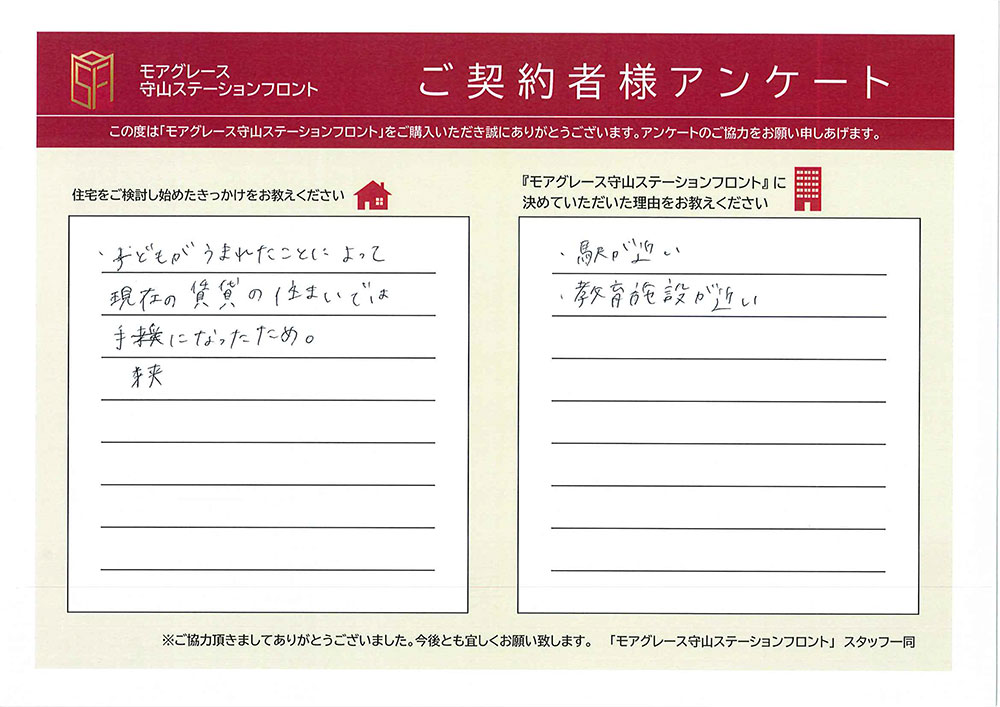 モアグレース
守山ステーションフロント
ご契約者様アンケート
この度は「モアグレース守山ステーションフロント」をご購入いただき誠にありがとうございます。アンケートのご協力をお願い申しあげます。
住宅をご検討し始めたきっかけをお教えください
・子どもがうまれたことによって
現在の賃貸の住まいでは
手になったため。
『モアグレース守山ステーションフロント』に
決めていただいた理由をお教えください
・駅が近い
・教育施設が近い
※ご協力頂きましてありがとうございました。今後とも宜しくお願い致します。 「モアグレース守山ステーションフロント」 スタッフ一同